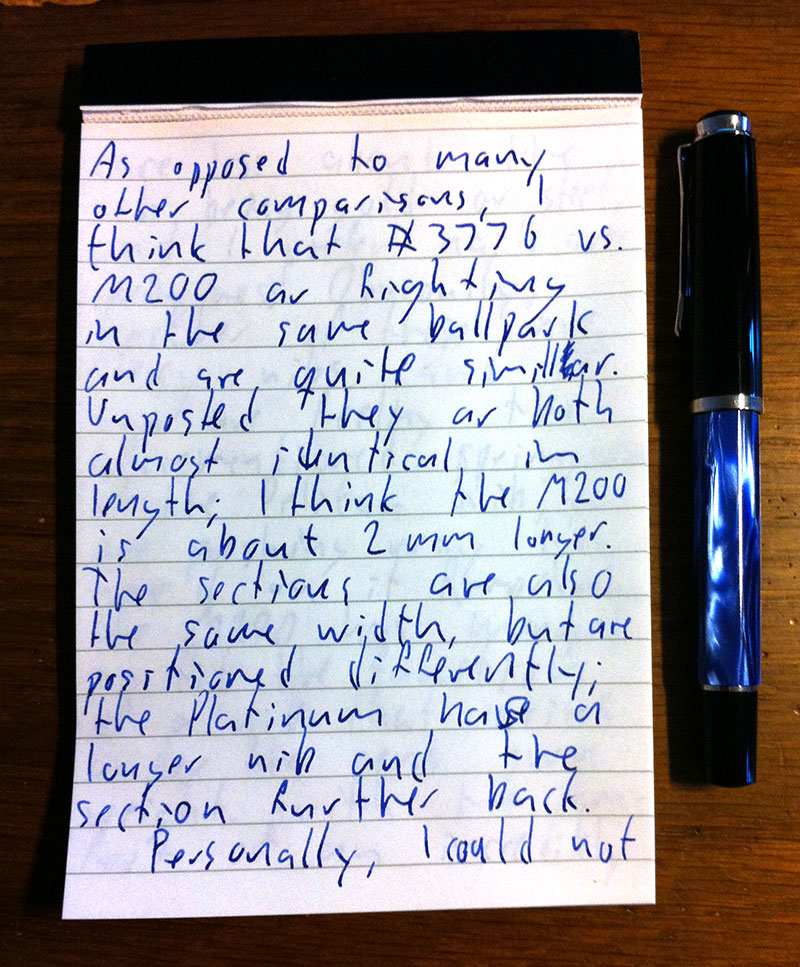 As opposed to many
other comparisons, I
think that #3776 vs.
M200 ar fighting
in the same ballpark
and are quite similar.
Unposted they ar both
almost identical in
length; I think the M200
is about 2 mm longer.
The sections are also
the same width, but are
positioned differently;
the Platinum has a
longer nib and the
section further back.
Personally, I could not